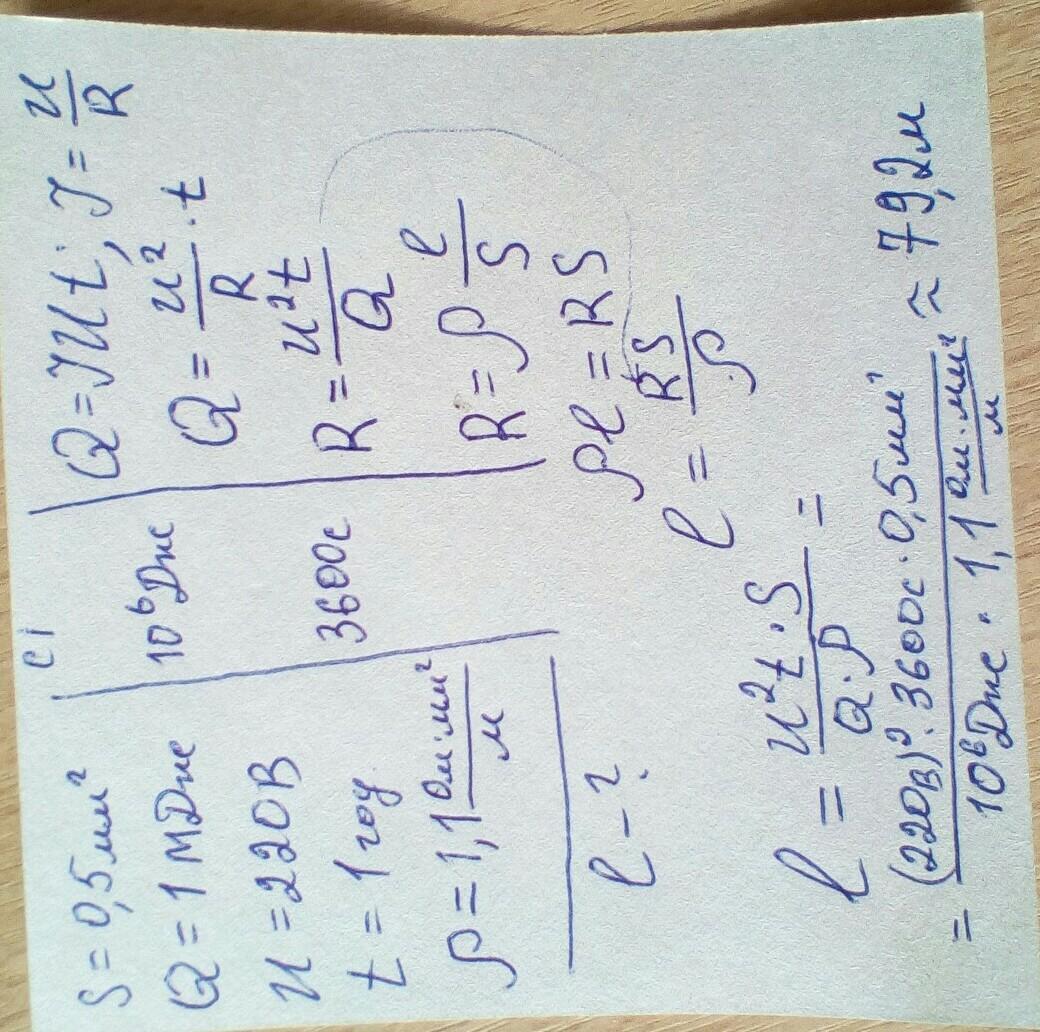 S = 0,5 мм²
Q = 1 МДж
U = 220 В
t = 1 год
ρ = 1,1 Ом·мм²/м
l - ?
СІ
10⁶ Дж
3600 с
Q = IUt; I = U/R
Q = U²/R · t
R = U²t/Q
R = ρ l/S
ρl = RS
l = RS/ρ
l = U²t·S/Q·ρ =
= (220В)²·3600с·0,5мм²/10⁶Дж·1,1 Ом·мм²/м ≈ 79,2 м